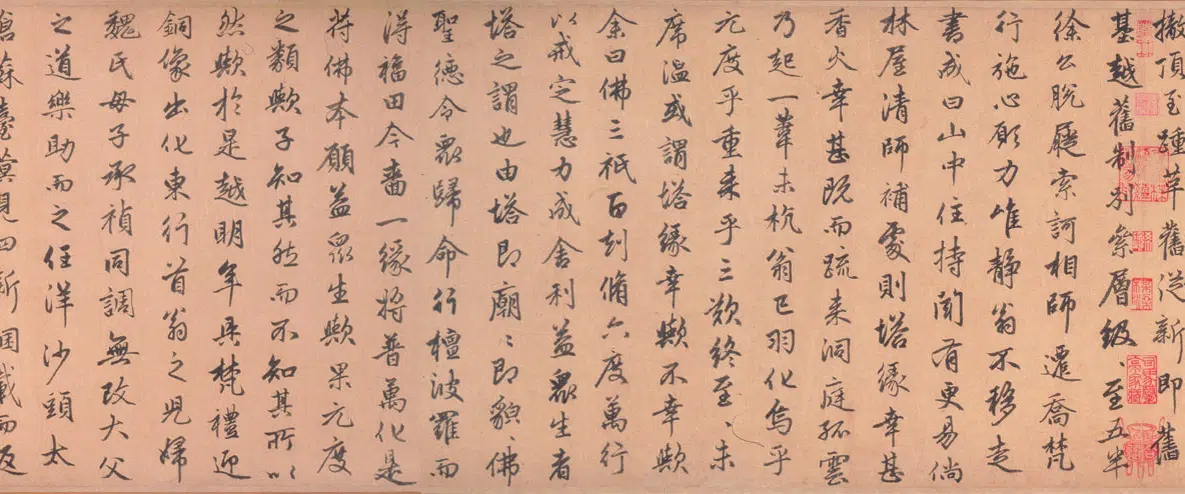 撤頂至踵革舊從新即舊
基越舊制別祭層級至五半
徐公脫屣索訶相師遷喬梵
行施心願力唯靜翁不移走
書成曰山中住持闻有更易倘
林屋清師補處則塔緣幸甚
香火幸甚既而疏来洞庭孤雲
乃起一葦未杭翁已羽化烏乎
元度乎重来乎三歎終至、未
席温或謂塔緣幸歟不幸歟
余曰佛三祇百刦脩六度萬行
以戒定慧力成舍利益眾生者
塔之謂也由塔即廟、即貌、佛
聖德令眾歸命行檀波羅而
得福田今嗇一緣將普萬化是
符佛本願益眾生歟果元度
之類歟子知其然而不知其所以
然歟於是越明年具梵禮迎
銅像出化東行首翁之児婦
魏氏母子承禎同調無改大父
之道樂助而之任洋沙頭太
倉